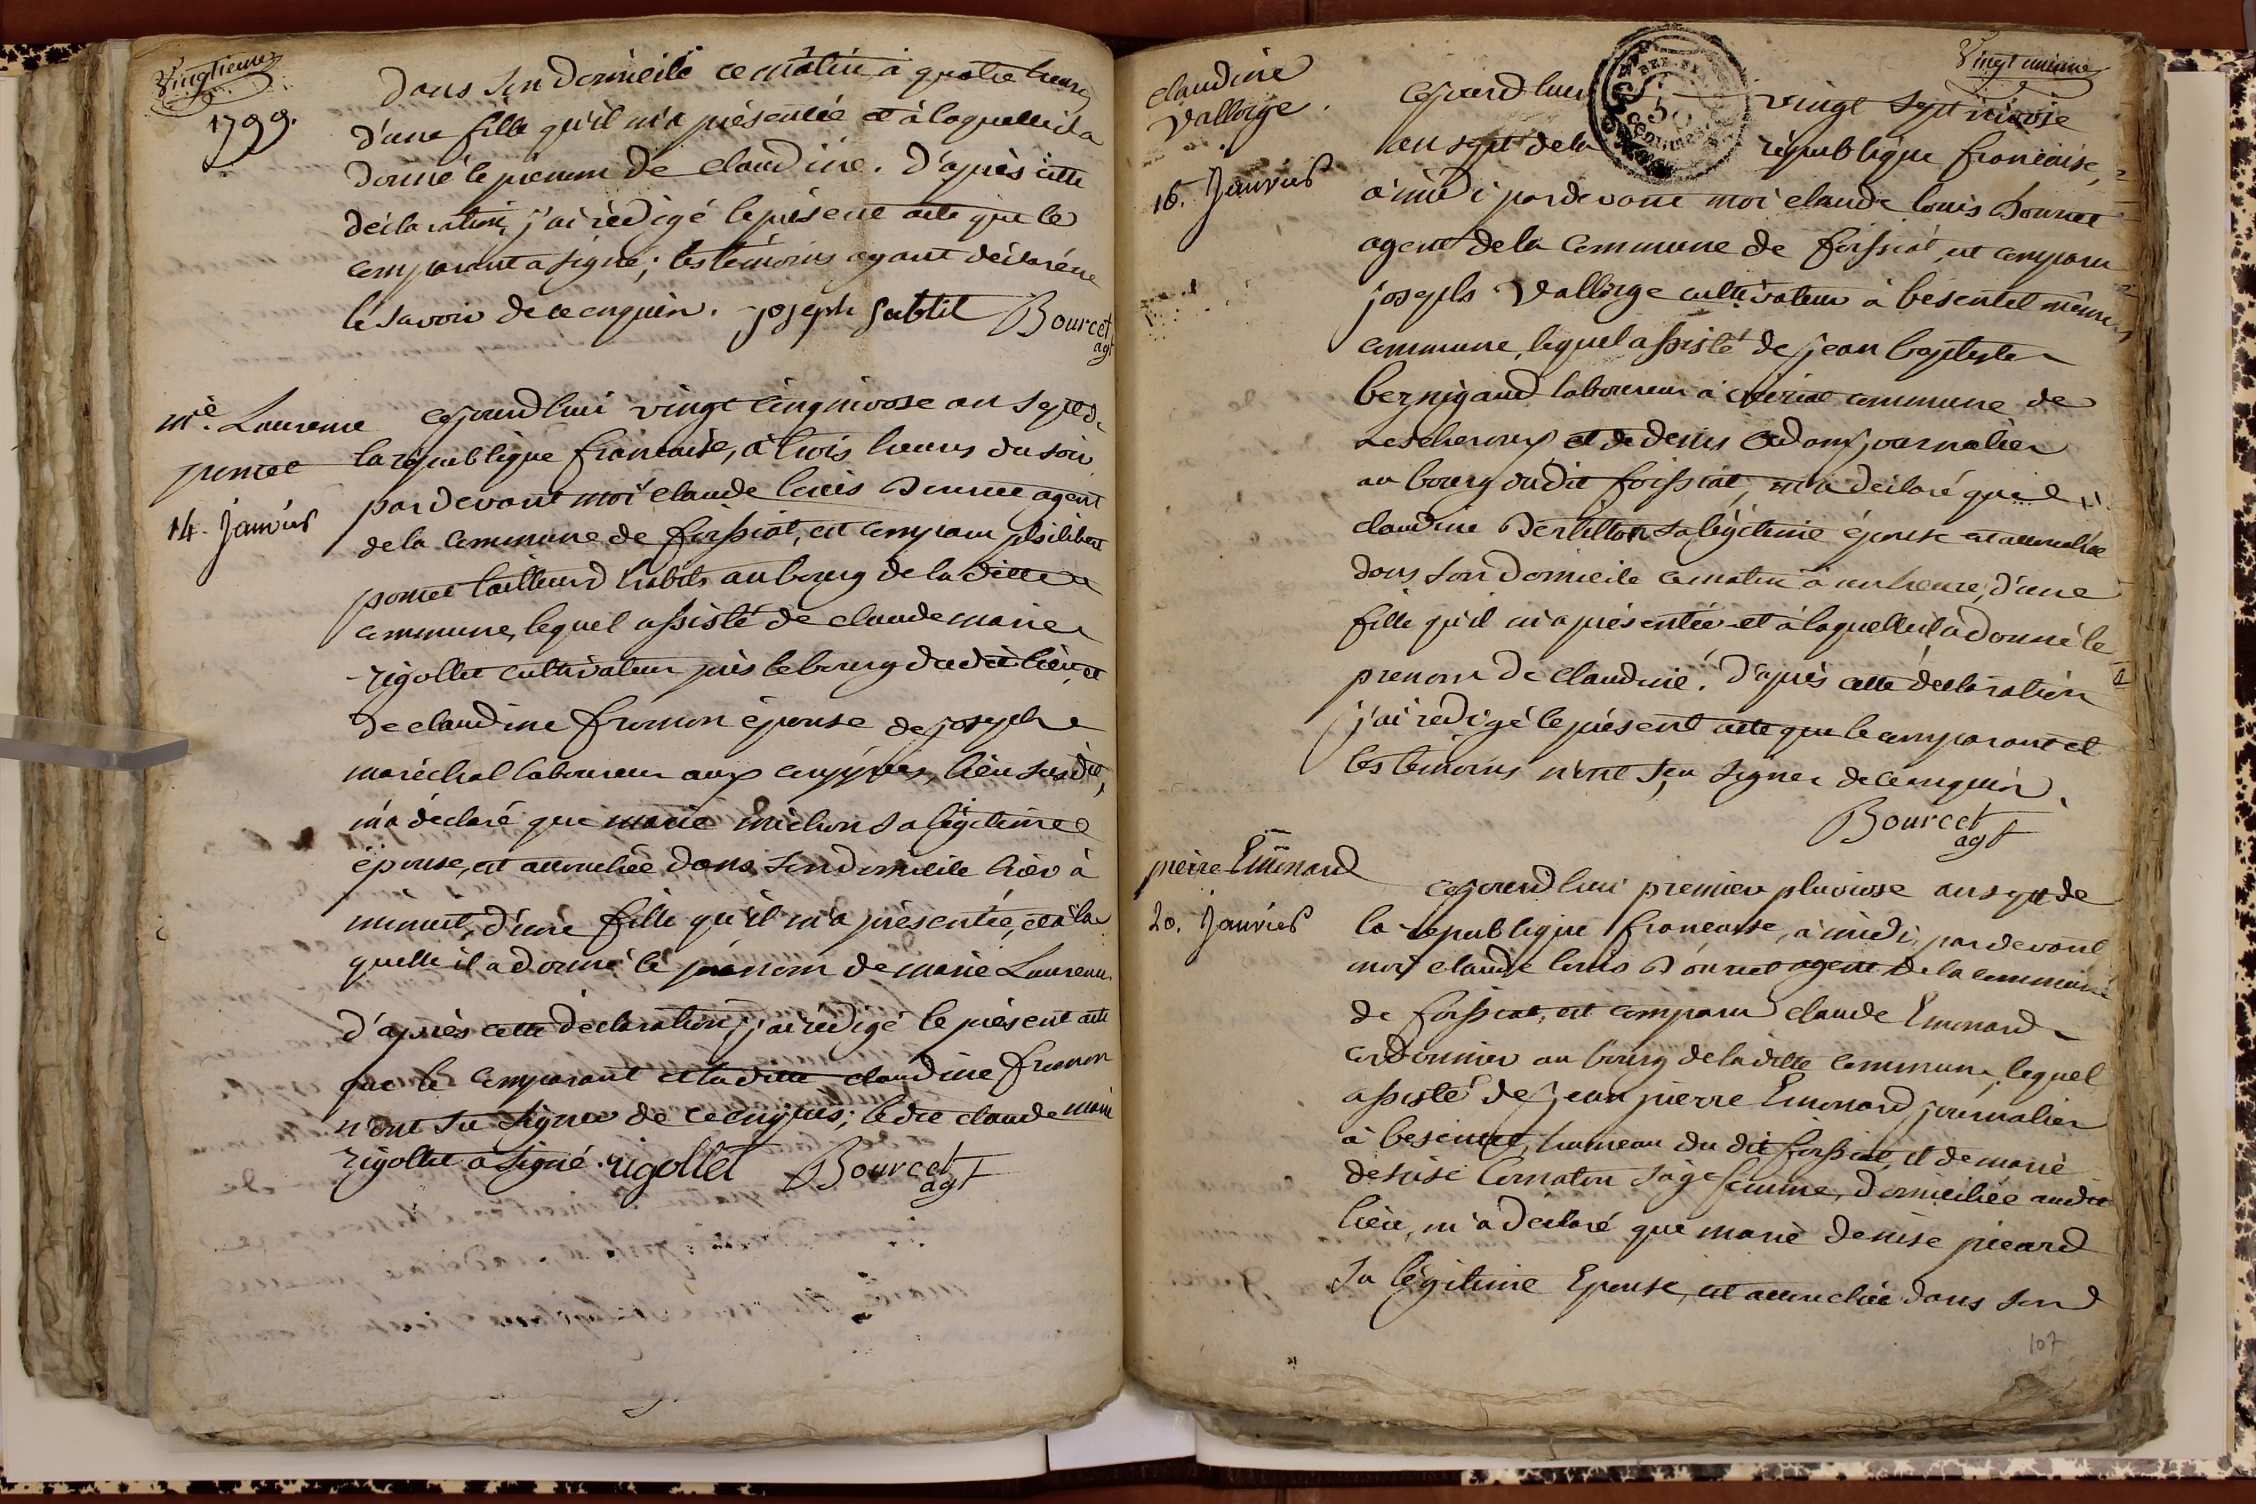 Vingtieme
1799.
dans son domicile ce matin à quatre heures
d'une fille qu'il m'a présentée et à laquelle il a
donné le prenom de claudine. D'après cette
déclaration, j'ai rédigé le présent acte que le
comparant a signé; les témoins ayant déclaré ne
le savoir de ce enquis. joseph subtil Bourcet
agt
mie. Laurence
poncet
14. Janvier
cejourdhui vingt cinq nivose an sept de
la république francaise, à trois heures du soir
pardevant moi claude louis Bourcet agent
de la commune de foissiat, est comparu philibert
poncet tailleur d'habits au bourg de la ditte
commune, lequel assisté de claude marie
rigollet cultivateur près le bourg du dit lieu, et
de claudine fromon épouse de joseph
maréchal laboureur aux lieu susdit,
m'a déclaré que marie michon sa légitime
épouse, est accouchée dans son domicile hier à
minuit, d'une fille qu'il m'a présentée, et à la
quelle il a donné le prénom de marie Laurence
d'après cette déclaration, j'ai rédigé le présent acte
que le comparant et la ditte claudine fromon
n'ont su signer de ce enquis; le dit claude marie
rigollet a signé. rigollet Bourcet
agt
Vingt unieme
claudine
Vallorge.
16. Janvier
cejourd'hui vingt sept nivose
an sept de la république francaise,
à midi pardevant moi claude louis Bourcet
agent de la commune de foissiat, est comparu
joseph Vallorge cultivateur à besentet même
commune, lequel assisté de jean baptiste
bernigaud laboureur à commune de
Lescheroux et de denis Odom journalier
au bourg du dit foissiat, m'a déclaré que
claudine sa légitime épouse est accouchée
dans son domicile ce matin à un heure, d'une
fille qu'il m'a présentée et à laquelle il a donné le
prenom de claudine. D'après cette déclaration
j'ai rédigé le présent acte que le comparant et
les témoins n'ont su signer de ce enquis.
Bourcet
agt
pierre Emonard
20. Janvier
cejourd'hui premier pluviose an sept de
la republique francaise, à midi, pardevant
moi claude louis Bourcet agent de la commune
de foissiat, est comparu claude Emonard
cordonnier au bourg de la ditte commune, lequel
assisté de jean pierre Emonard journalier
à besentet, hameau du dit foissiat, et de marie
denise Comaton sage femme, domiciliée audit
lieu, m'a déclaré que marie denise picard
sa légitime Epouse, est accouchée dans son
107